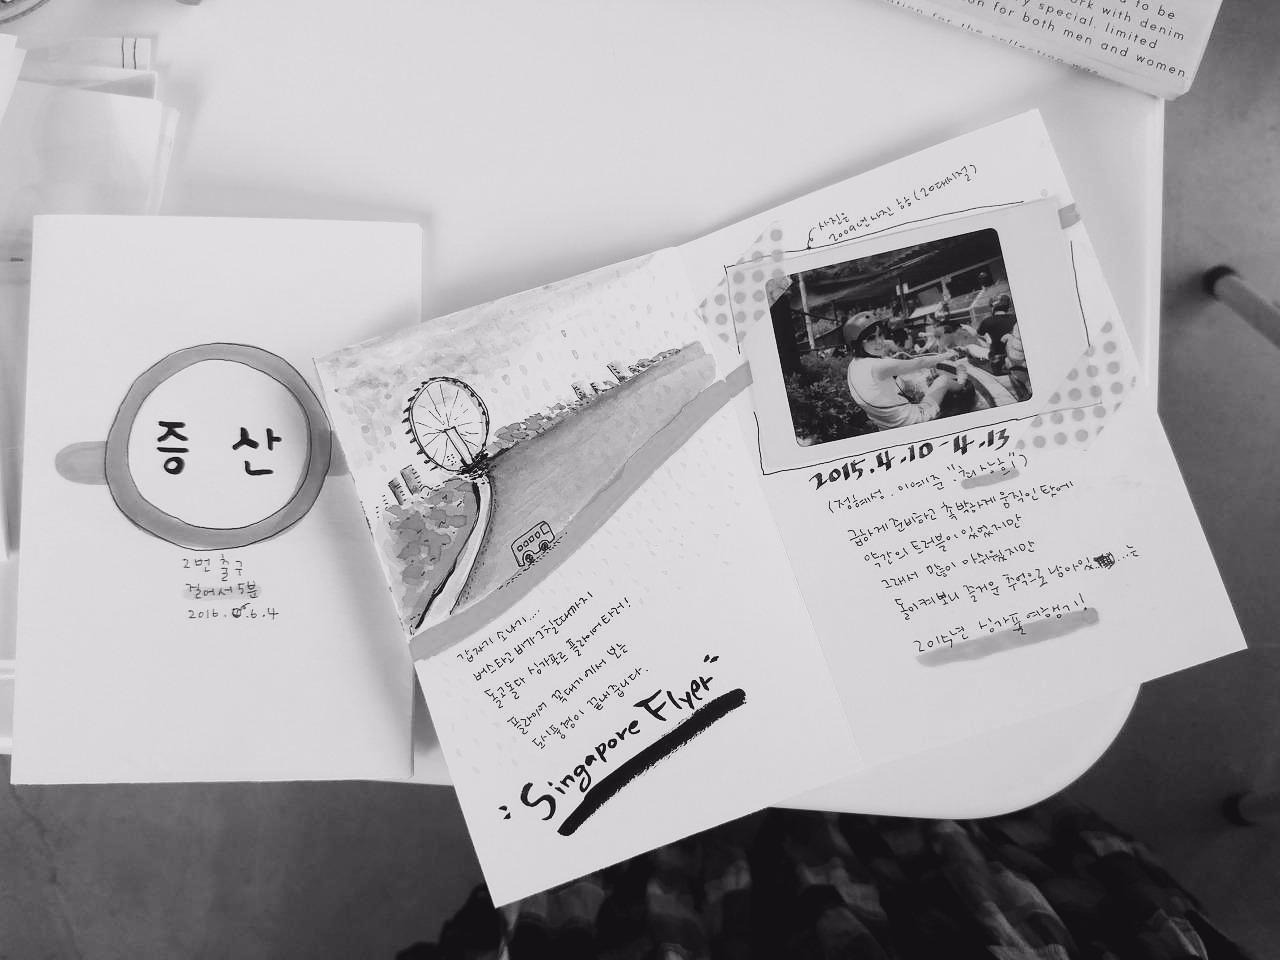 to be
work with denim
very special, limited
for both men and women
for the collection was
증 산
2번 출구
걸어서 5분
2016. 6. 4
갑자기 소나기....
버스타고 비가 그칠때까지
돌고돌다 싱가포르 플라이어 타러!
플라이어 꼭대기에서 보는
도시풍경이 끝내줍니다.
"Singapore Flyer"
사진은
2009년 사진 ㅎㅎ (20대시절)
2015.4.10-4.13
(정혜성. 이예준
급하게 준비하고 촉박하게 움직인 탓에
약간의 트러블이 있었지만
그래서 많이 아쉬웠지만
돌이켜보니 즐거운 추억으로 남아있 ....는
2015년 싱가폴 여행기!